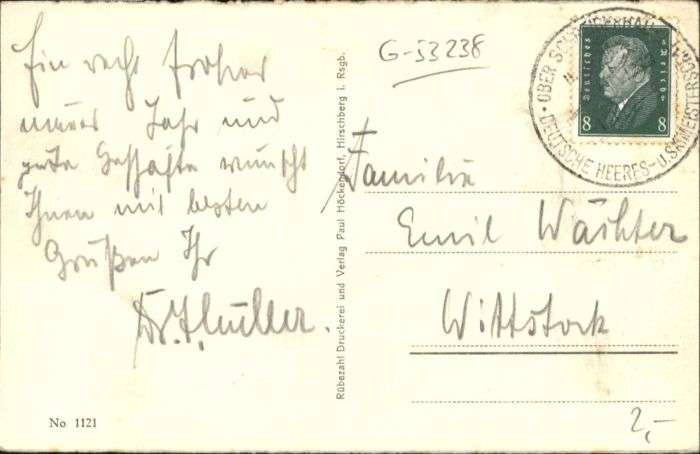 Ein recht frohes
neues Jahr und
gute Geschäfte wünscht
Ihnen mit besten
Grüßen Ihr
Dr. Müller.
No 1121
Rübezahl Druckerei und Verlag Paul Höckendorf, Hirschberg i. Rsgb.
G-53238
Deutsches
Reich
8 8
OBER SCHREIBERHAU
DEUTSCHE HEERES- U. SKIMEISTER
Familie
Emil Wächter
Wittstock
2,-